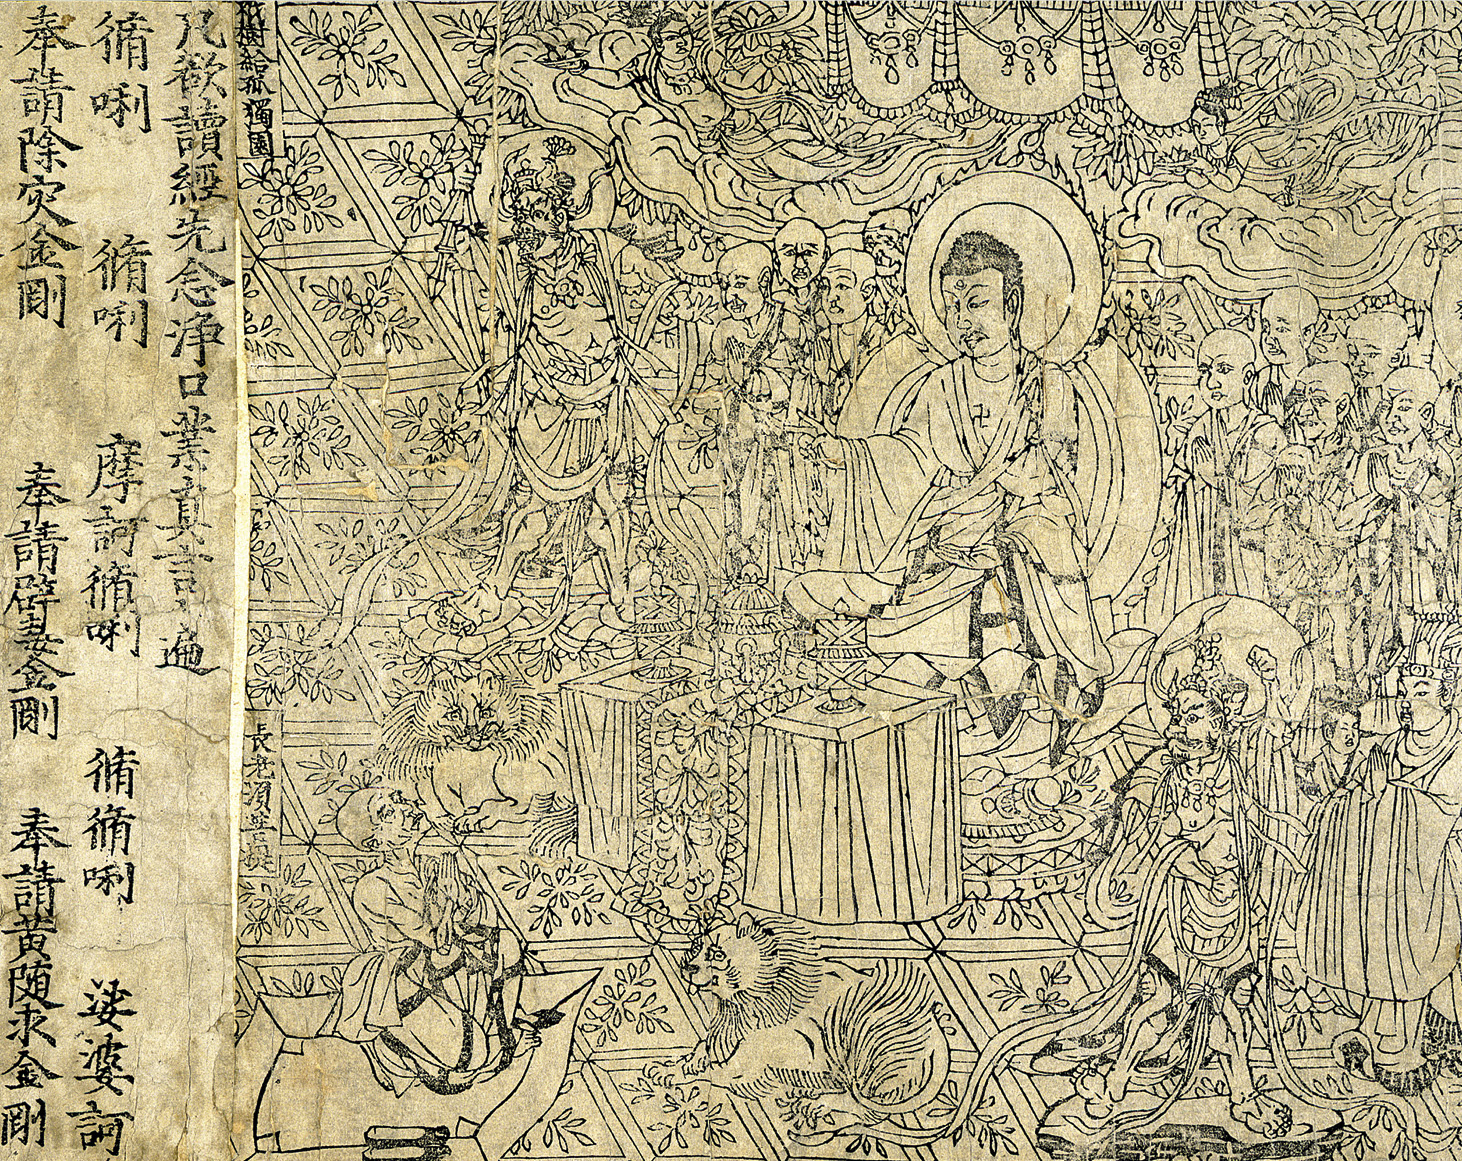 祇樹給孤獨園
長老須菩提
凡欲讀經先念淨口業真言一遍
脩唎 脩唎 摩訶脩唎 脩脩唎 娑婆訶
奉請除灾金剛 奉請辟毒金剛 奉請黃随求金剛